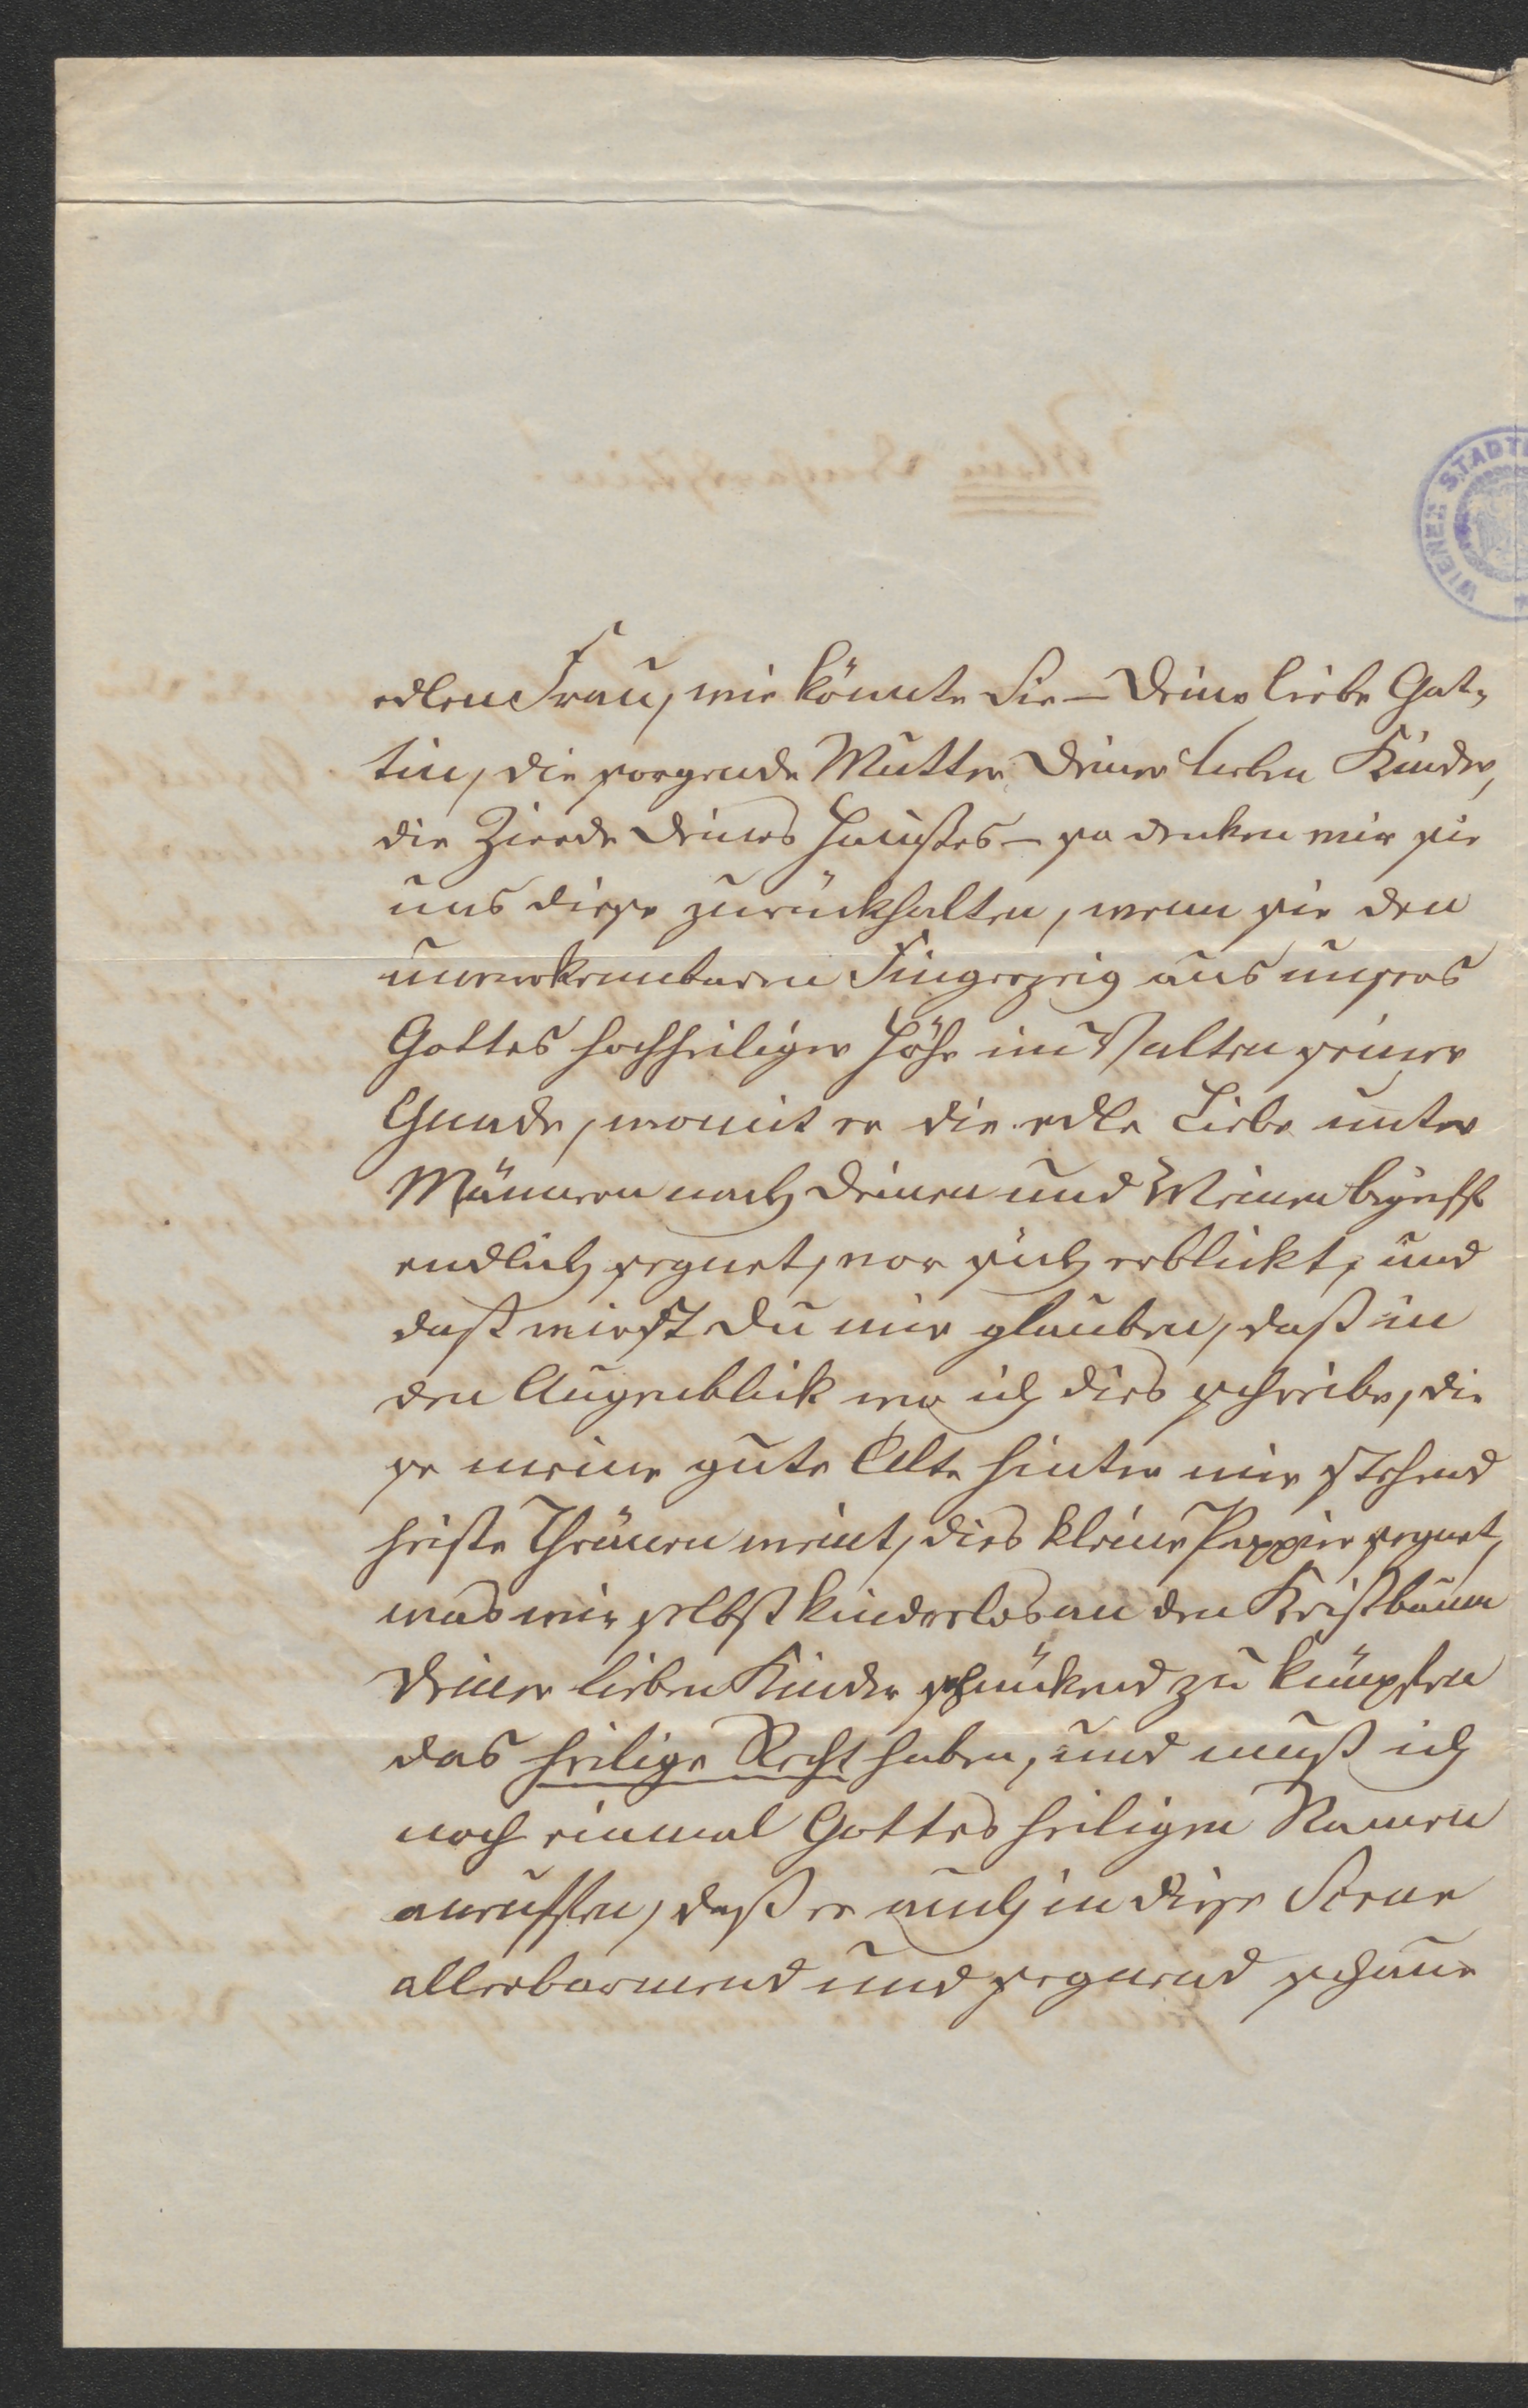 WIENER STADT
edlen Frau, wie könnte Sie – Deine liebe Gat-
tin, die sorgende Mutter Deiner lieben Kinder,
die Zierde Deines Haußes – so denken wir sie
uns diese zurückhalten, wenn sie den
unverkennbaren Fingerzeig aus unsers
Gottes hochheiliger Höhe im Walten seiner
Gnade, womit er die edle Liebe unter
Männern nach Deinen und Meinen begriff
endlich segnet, vor sich erblickt, und
daß wirst Du mir glauben, daß in
den Augenblick wo ich dies schreibe, die
se meine gute Alte hinter mir stehend
heiße Thränen weint, dies kleine Pappier segnet,
was wir selbst kinderlos an den Kristbaum
Deiner lieben Kinder schmükend zu knüpfen
das heilige Recht haben, und muß ich
noch einmal Gottes heiligen Namen
anruffen, daß er auch in diese Scene
allerbarmend und segnend schaue